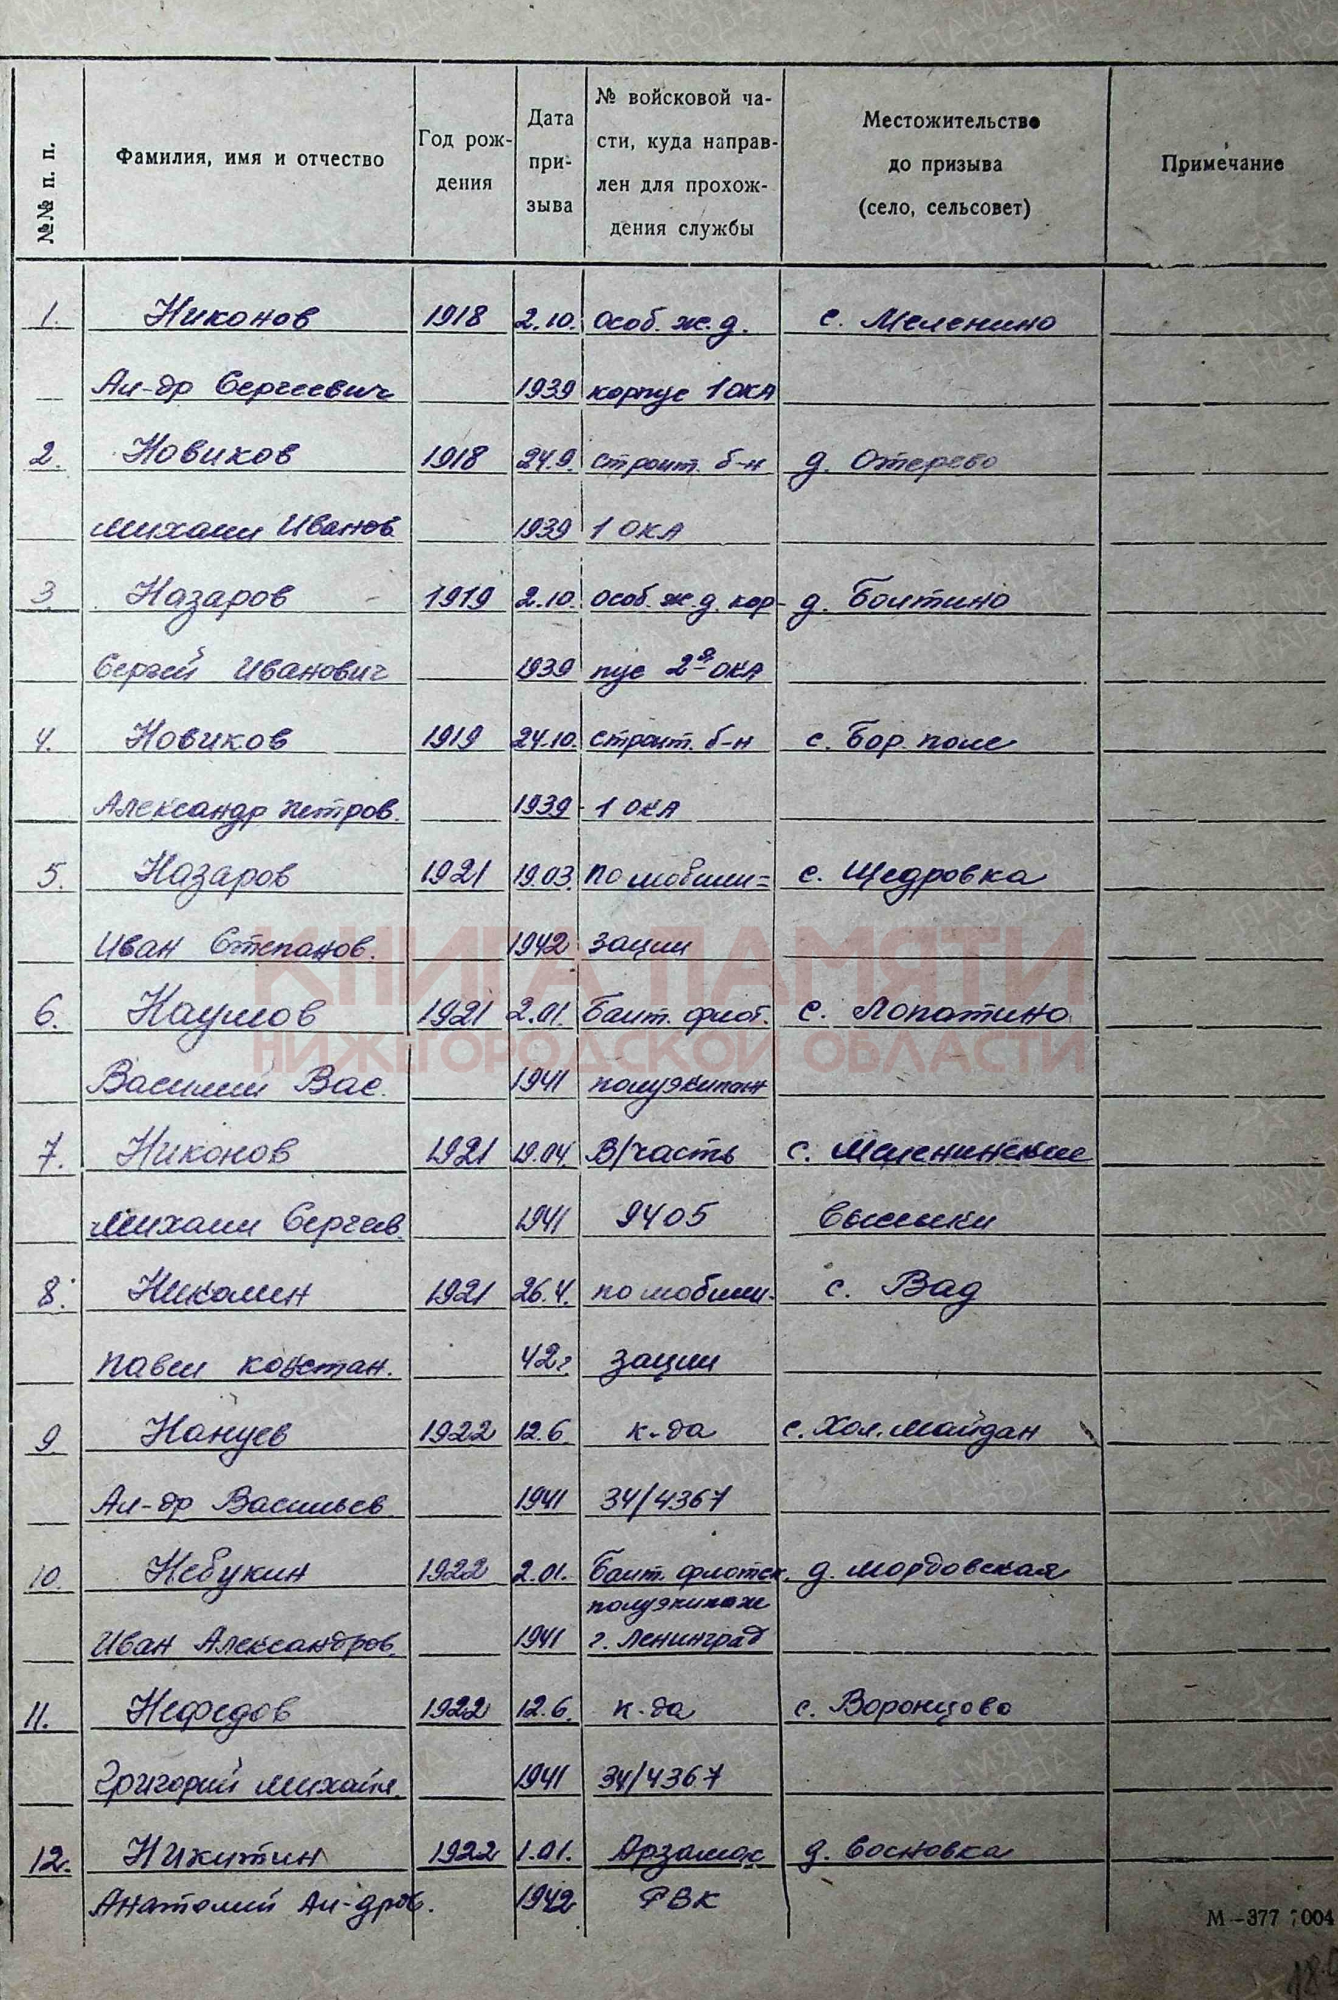 №№ п. п.
Фамилия, имя и отчество
Год рож-
дения
Дата
при-
зыва
№ войсковой ча-
сти, куда направ-
лен для прохож-
дения службы
Местожительство
до призыва
(село, сельсовет)
Примечание
1. Никонов 1918 2.10. Особ. ж.д. с. Меленино
Ал-др Сергеевич 1939 корпус 1 ОКА
2. Новиков 1918 24.9. строит. б-н д. Отерево
Михаил Иванов 1939 1 ОКА
3 Назаров 1919 2.10. особ. ж.д. кор- д. Болтино
Сергей Иванович 1939 пус 2я ОКА
4. Новиков 1919 24.10. строит. б-н с. Бор. поле
Александр Петров. 1939 1 ОКА
5. Назаров 1921 19.03. по мобили= с. Щедровка
Иван Степанов. 1942 зации
КНИГА ПАМЯТИ
6. Наумов 1921 2.01. Балт. флот. с. Лопатино
НИЖЕГОРОДСКОЙ ОБЛАСТИ
Василий Вас. 1941 полуэкипаж
7. Никонов 1921 19.04. В/часть с. Меленинские
Михаил Сергеев. 1941 9405 Выселки
8. Николин 1921 26.4. по мобили- с. Вад
Павел Констан. 42г зации
9 Нануев 1922 12.6. к-да с. Хол. Майдан
Ал-др Васильев 1941 34/4367
10. Небукин 1922 2.01. Балт. флотск. д. Мордовская
полуэкипаж
Иван Александров. 1941 г. Ленинград
11. Нефедов 1922 12.6. к-да с. Воронцово
Григорий Михайл. 1941 34/4367
12. Никитин 1922 1.01. Арзамас д. Сосновка
Анатолий Ал-дров. 1942 РВК
М—377